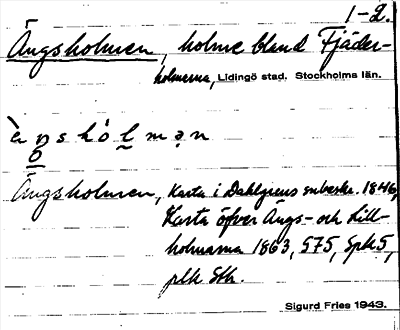 1-2.
Ängsholmen, holme bland Fjäder-
holmarna, Lidingö stad. Stockholms län.
Ängsholmen, Karta i Dahlgrens subeskr. 1846,
Karta öfver Ängs- och Lill-
holmarna 1863, S75, Spk 5,
plk Sth.
Sigurd Fries 1943.